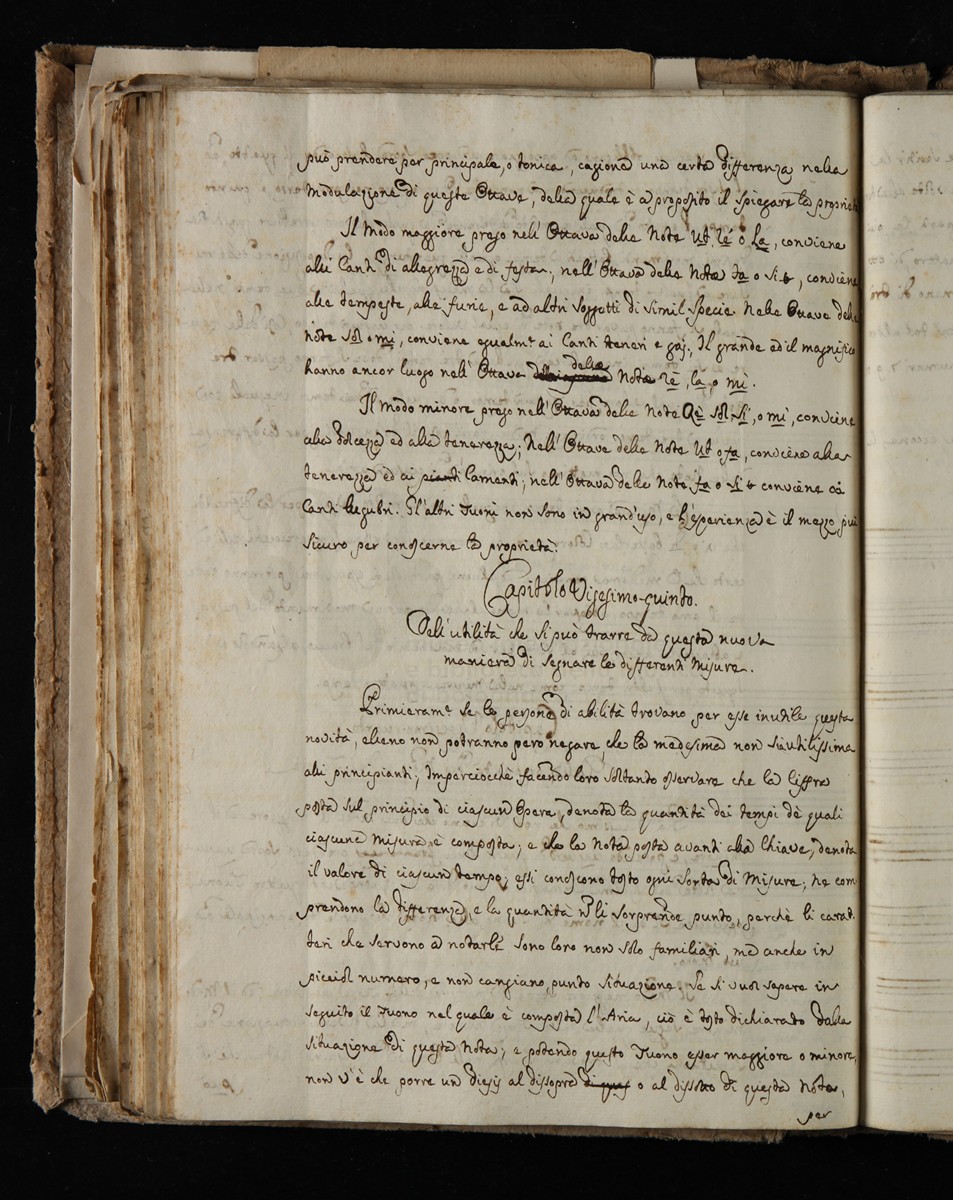 può prendere per principale, o tonica, cagiona una certa differenza nella
Modulazione di queste Ottave, della quale è a proposito il spiegare la propriet
Il Modo maggiore preso nell' Ottava delle Note Ut, ré o La, conviene
alli Canti di allegrezza e di festa; nell'Ottava delle Note fa o si b, conviene
alle tempeste, alle furie, e ad altri soggetti di simil specie. Nelle Ottave delle
note sol o mi, conviene egualmte ai Canti teneri e gaj. Il grande ed il magnifico
hanno ancor luogo nell' Ottava delle Note ré, la, o mi.
Il Modo minore preso nell'Ottava delle Note Ré sol, si, o mi, conviene
alla dolcezza ed alla tenerezza; Nell'Ottava delle Note Ut o fa, conviene alla
tenerezza ed ai pianti lamenti; nell'Ottava delle Note fa o si b conviene ai
Canti lugubri. Gl'altri Tuoni non sono in grand'uso, e l'esperienza è il mezzo più
sicuro per conoscerne la proprietà.
Capitolo Vigesimo-quinto.
Dell'utilità che si può trarre da questa nuova
maniera di segnare le differenti Misure.
Primieramte se le persone di abilità trovano per esse inutile questa
novità, elleno non potranno però negare, che la medesima non sia utilissima
alli principianti; Imperciocchè facendo loro soltanto osservare che la Ciffra
posta sul principio di ciascun Opera, denota la quantità dei tempi de quali
ciascuna Misura è composta; e che la Nota posta avanti alla Chiave, denota
il valore di ciascun tempo; essi conoscono tosto ogni sorta di Misure; ne com
prendono la differenza, e la quantità n̄ li sorprende punto, perchè li carat-
teri che servono a notarle sono loro non solo familiari, ma anche in
picciol numero, e non cangiano punto situazione. Se si vuol sapere in
seguito il Tuono nel quale è composta l'Aria, ciò è tosto dichiarato dalla
situazione di questa Nota; e potendo questo Tuono esser maggiore o minore,
non v'è che porre un diesis al dissopra di ques o al dissotto di questa Nota,
per